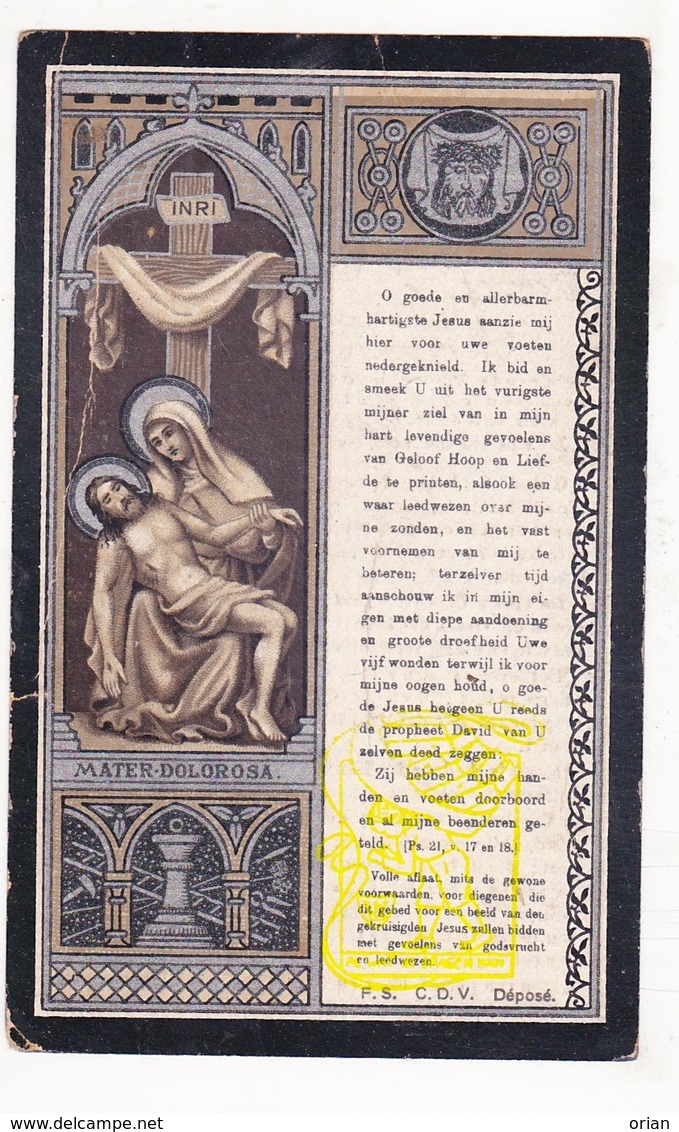 INRI
MATER-DOLOROSA
O goede en allerbarm-
hartigste Jesus aanzie mij
hier voor uwe voeten
nedergeknield. Ik bid en
smeek U uit het vurigste
mijner ziel van in mijn
hart levendige gevoelens
van Geloof Hoop en Lief-
de te printen, alsook een
waar leedwezen over mij-
ne zonden, en het vast
voornemen van mij te
beteren; terzelver tijd
aanschouw ik in mijn ei-
gen met diepe aandoening
en groote droefheid Uwe
vijf wonden terwijl ik voor
mijne oogen houd, o goe-
de Jesus hetgeen U reeds
de propheet David van U
zelven deed zeggen:
Zij hebben mijne han-
den en voeten doorboord
en al mijne beenderen ge-
teld. [Ps. 21, v. 17 en 18.]
Volle aflaat, mits de gewone
voorwaarden, voor diegenen die
dit gebed voor een beeld van den
gekruisigden Jesus zullen bidden
met gevoelens van godsvrucht
en leedwezen.
F. S. C. D. V. Déposé.
www.delcampe.net
orian